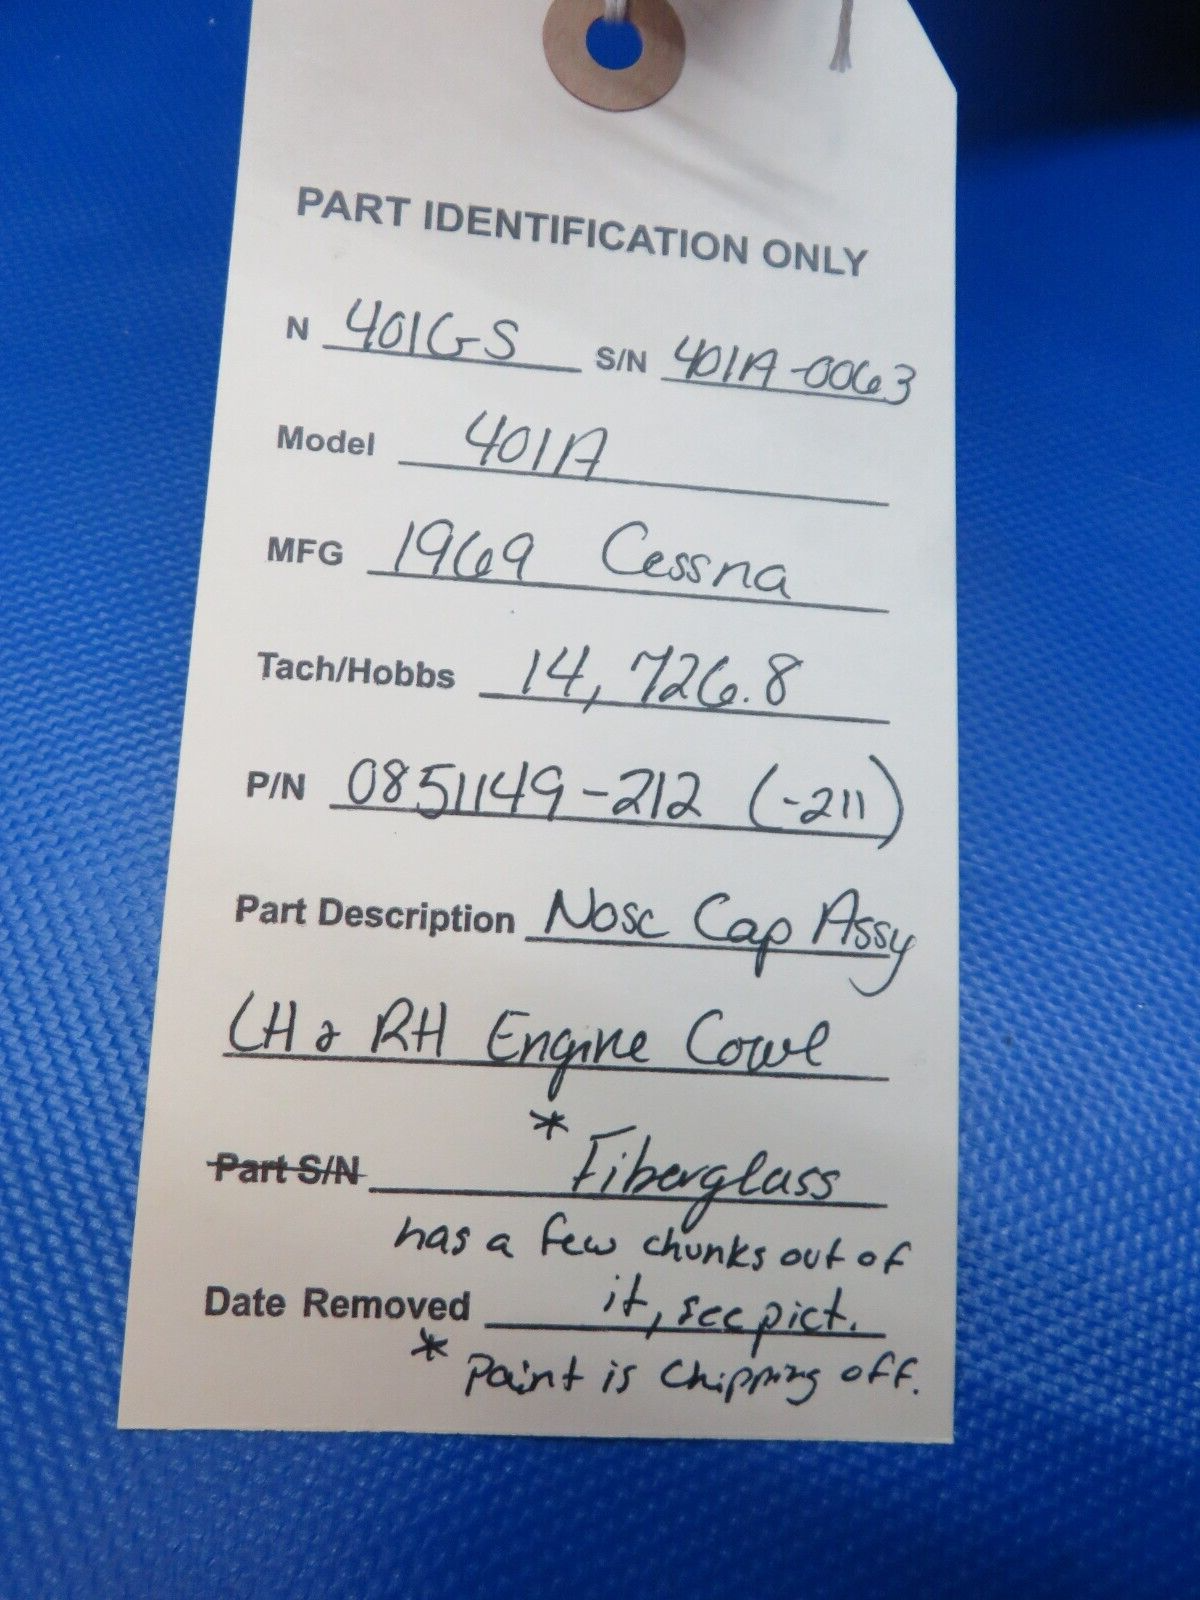 PART IDENTIFICATION ONLY
N 401GS S/N 401A-0063
Model 401A
MFG 1969 Cessna
Tach/Hobbs 14,726.8
P/N 0851149-212 (-211)
Part Description Nose Cap Assy
LH & RH Engine Cowl
Part S/N * Fiberglass
has a few chunks out of
Date Removed it, see pict.
* Paint is chipping off.